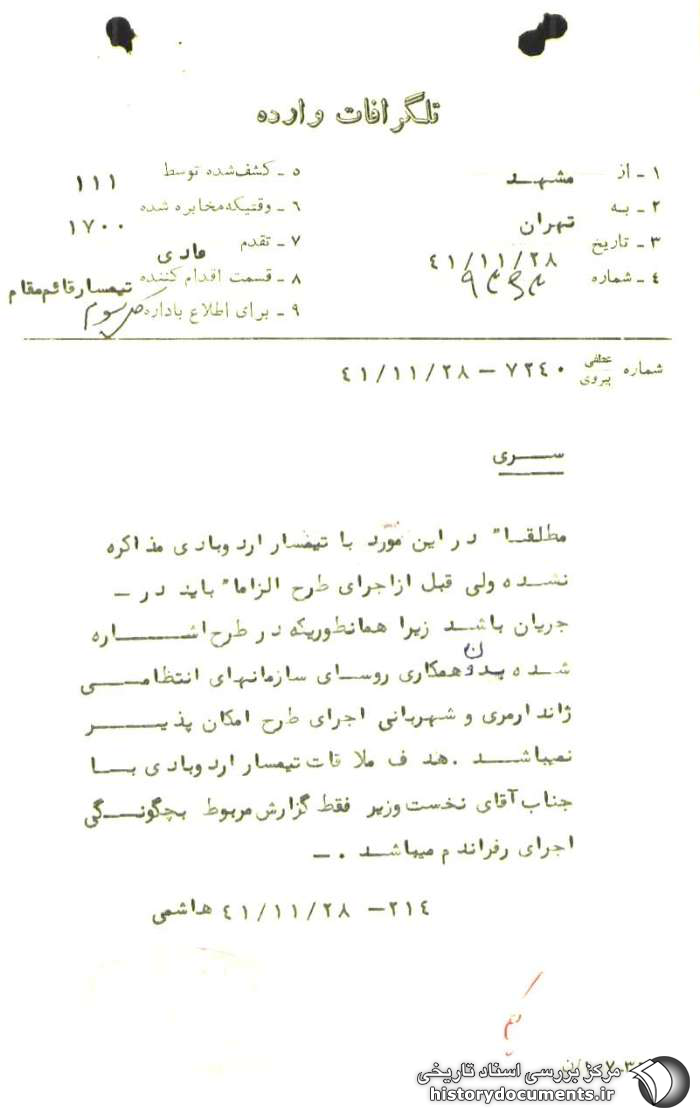 تلگرافات وارده
۱ - از مشهد
۲ - به تهران
۳ - تاریخ ۴۱/۱۱/۲۸
۴ - شماره
۵ - کشف شده توسط ۱۱۱
۶ - وقتیکه مخابره شده ۱۷۰۰
۷ - تقدم عادی
۸ - قسمت اقدام کننده تیمسار قائم مقام
۹ - برای اطلاع باداره کل سوم
شماره عطفی پیروی ۷۲۴۰ – ۴۱/۱۱/۲۸
سری
مطلقا" در این مورد با تیمسار اردوبادی مذاکره
نشده ولی قبل از اجرای طرح الزاما" باید در –
جریان باشد زیرا همانطوریکه در طرح اشاره
شده بدون همکاری روسای سازمانهای انتظامی
ژاندارمری و شهربانی اجرای طرح امکان پذیر
نمیباشد . هدف ملاقات تیمسار اردوبادی با
جناب آقای نخست وزیر فقط گزارش مربوط بچگونگی
اجرای رفراندم میباشد . –
۲۱۴ – ۴۱/۱۱/۲۸ هاشمی
مرکز بررسی اسناد تاریخی
historydocuments.ir